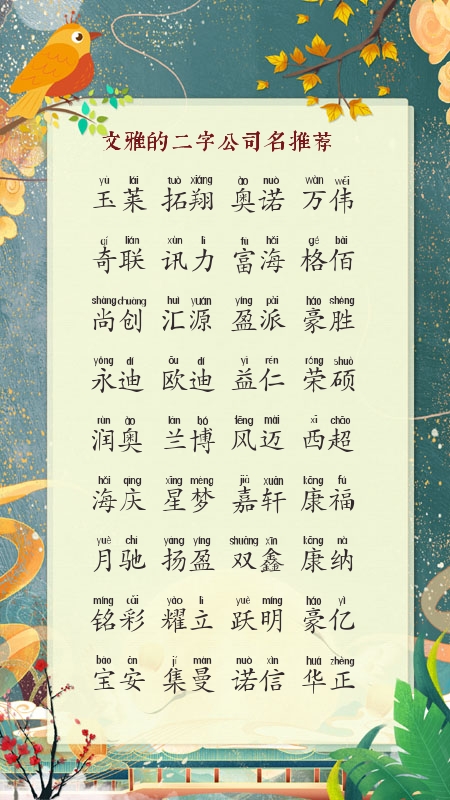 文雅的二字公司名推荐
yù lái tuò xiáng ào nuò wàn wěi
玉莱 拓翔 奥诺 万伟
qí lián xùn lì fù hǎi gé bǎi
奇联 讯力 富海 格佰
shàng chuàng huì yuán yíng pài háo shèng
尚创 汇源 盈派 豪胜
yǒng dí ōu dí yì rén róng shuò
永迪 欧迪 益仁 荣硕
rùn ào lán bó fēng mài xī chāo
润奥 兰博 风迈 西超
hǎi qìng xīng mèng jiā xuān kāng fú
海庆 星梦 嘉轩 康福
yuè chí yáng yíng shuāng xīn kāng nà
月驰 扬盈 双鑫 康纳
míng cǎi yào lì yuè míng háo yì
铭彩 耀立 跃明 豪亿
bǎo ān jí màn nuò xìn huá zhèng
宝安 集曼 诺信 华正